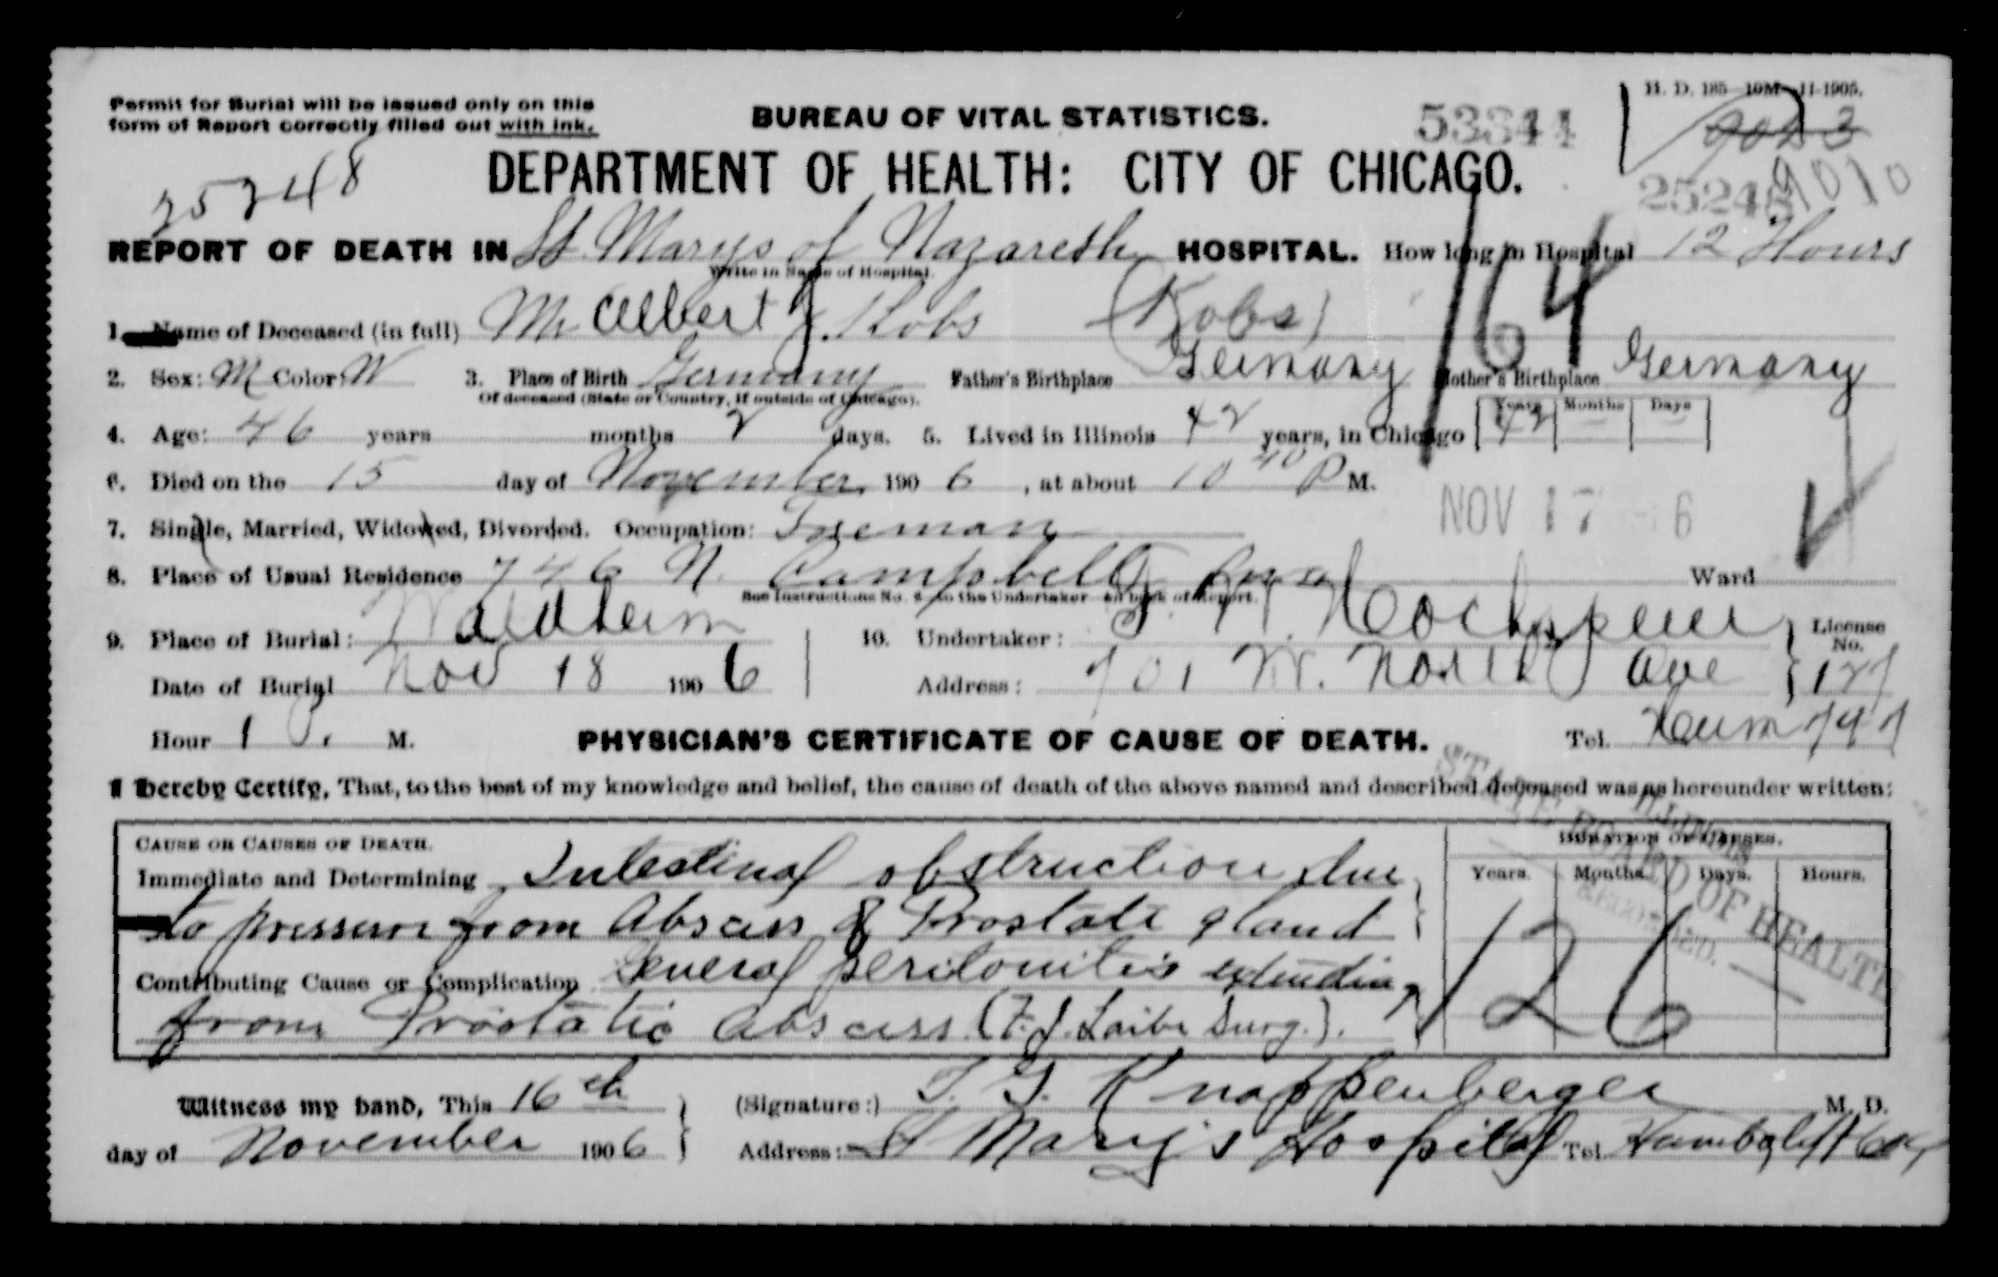 Permit for Burial will be issued only on this
form of Report correctly filled out with ink.
BUREAU OF VITAL STATISTICS.
53344
H. D. 185 10M 11-1905.
25248
DEPARTMENT OF HEALTH: CITY OF CHICAGO.
25248 9010
REPORT OF DEATH IN St. Marys of Nazareth HOSPITAL. How long in Hospital 12 Hours
Write in Name of Hospital.
164
1. Name of Deceased (in full) Mr Albert J. Kobs (Kobs)
2. Sex: M Color: W 3. Place of Birth Germany Father's Birthplace Germany Mother's Birthplace Germany
Of deceased (State or Country, if outside of Chicago).
Years Months Days
4. Age: 46 years months 2 days. 5. Lived in Illinois 42 years, in Chicago 42 – –
6. Died on the 15 day of November 1906, at about 10 40 P M.
NOV 17 6
7. Single, Married, Widowed, Divorced. Occupation:
8. Place of Usual Residence 746 N. Campbell Ave Ward
See Instructions No. 4 to the Undertaker on back of Report.
9. Place of Burial: Waldheim 10. Undertaker: License No.
Date of Burial Nov 18 1906 Address: 701 W. North Ave 127
Hour 1 P. M. PHYSICIAN'S CERTIFICATE OF CAUSE OF DEATH. Tel. 747
I hereby Certify, That, to the best of my knowledge and belief, the cause of death of the above named and described deceased was as hereunder written:
ILLINOIS
STATE BOARD OF HEALTH
RECORDED.
CAUSE OR CAUSES OF DEATH. DURATION OF CAUSES.
Immediate and Determining Intestinal obstruction due Years. Months. Days. Hours.
to pressure from Abscess of Prostate gland
Contributing Cause or Complication General peritonitis extending
from Prostatic Abscess (F. J. Laibe Surg.).
126
Witness my hand, This 16th (Signature:) T. G. Knappenberger M. D.
day of November 1906 Address: St Mary's Hospital Tel.